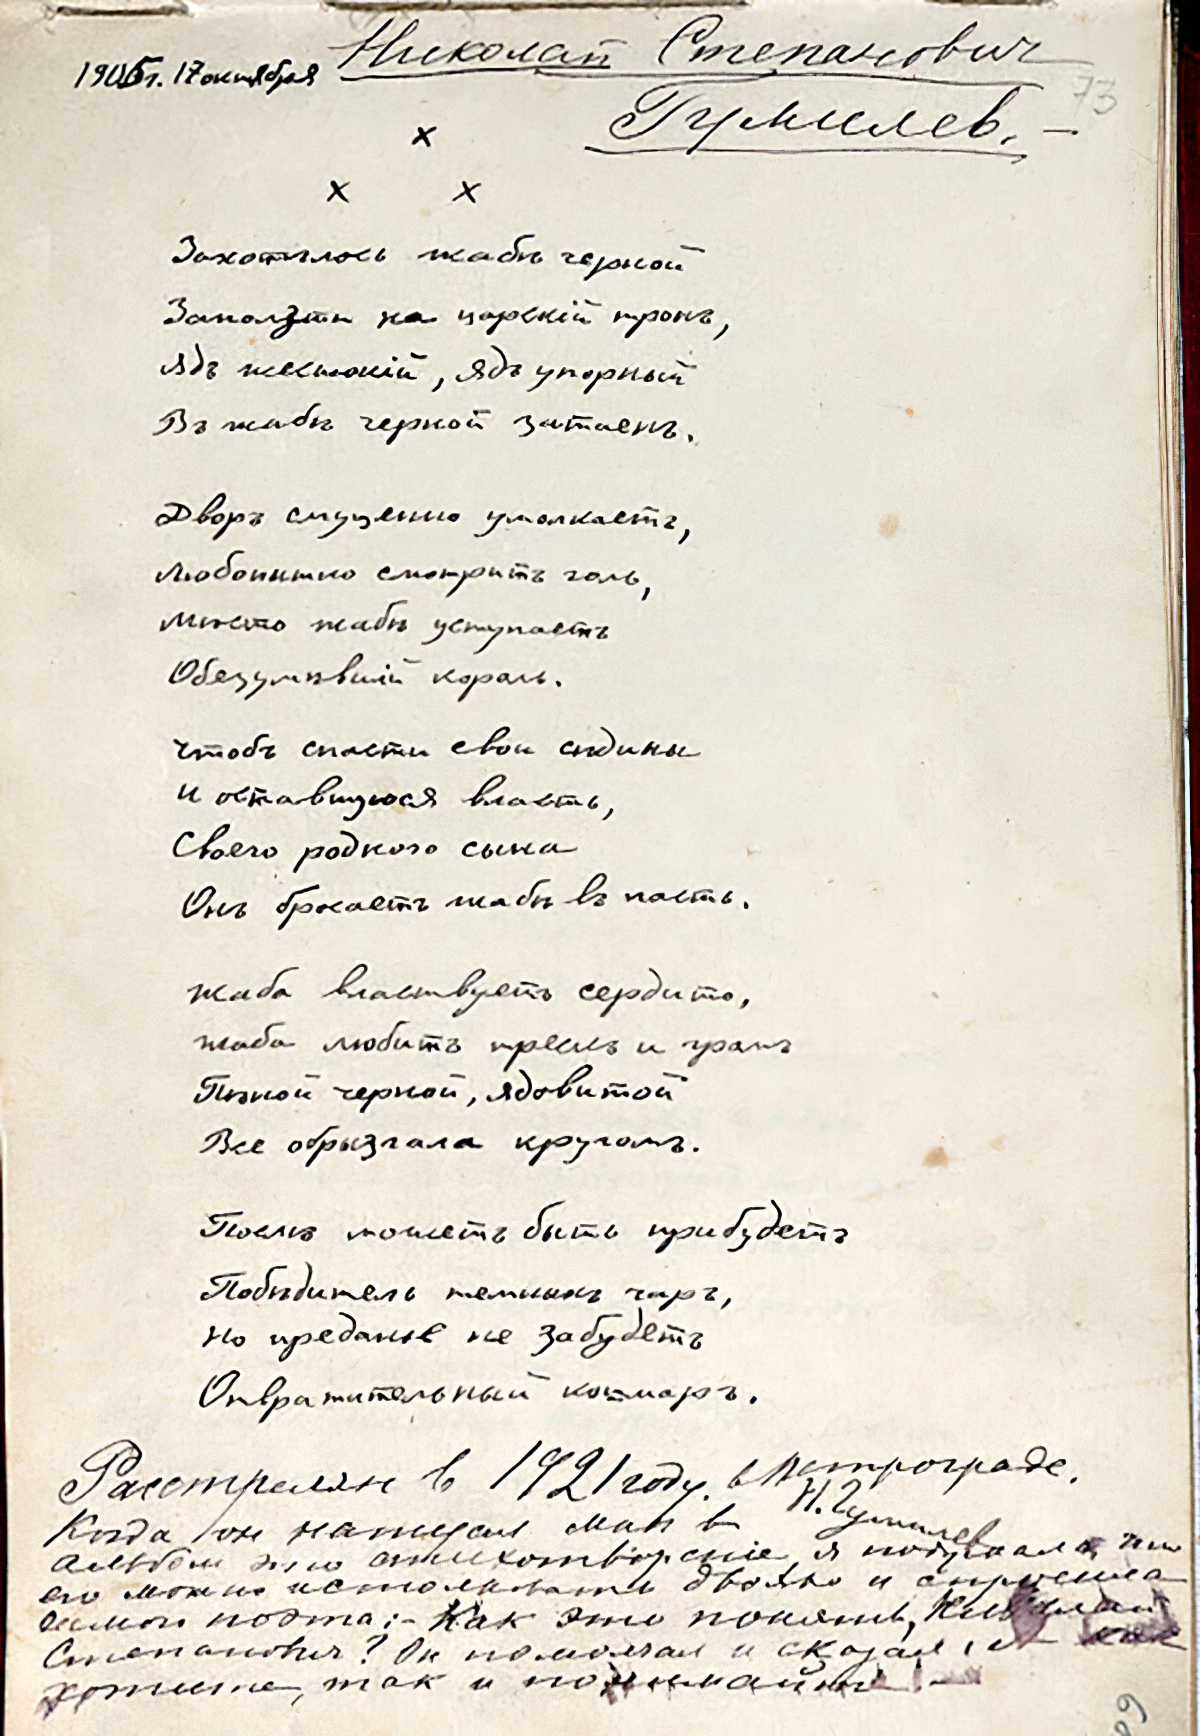 1905г. 17 октября
Николай Степанович
73
Гумилев. —
х
х х
Захотѣлось жабѣ черной
Заползти на царскій тронъ,
Ядъ жестокій, ядъ упорный
Въ жабѣ черной затаенъ.
Дворъ смущенно умолкаетъ,
Любопытно смотритъ голь,
Мѣсто жабѣ уступаетъ
Обезумѣвшій король.
Чтобъ спасти свои сѣдины
И оставшуюся власть,
Своего родного сына
Онъ бросаетъ жабѣ въ пасть.
Жаба властвуетъ сердито,
Жаба любитъ трескъ и громъ
Пѣной черной, ядовитой
Все обрызгала кругомъ.
Послѣ можетъ быть прибудетъ
Побѣдитель темныхъ чаръ,
Но преданье не забудетъ
Отвратительный кошмаръ.
Расстрелян в 1921 году. в Петрограде.
Н. Гумилев
Когда он написал мне в
альбом это стихотворенie, я подумала что
его можно истолковать двояко и спросила
самого поэта: - Как это понять, Николай
Степанович? Он помолчал и сказал: как
хотите, так и понимайте! —
69